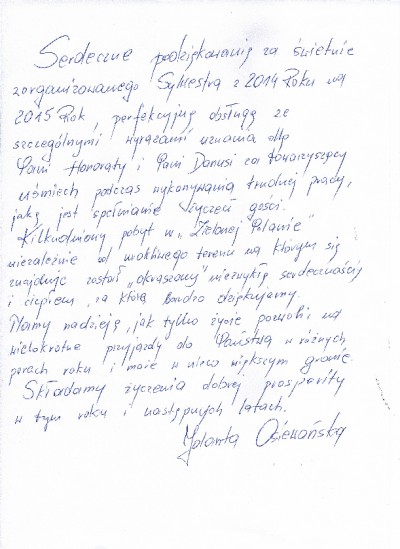 Serdeczne podziękowania za świetnie
zorganizowanego Sylwestra z 2014 Roku na
2015 Rok, perfekcyjną obsługą ze
szczególnymi wyrazami uznania dla
Pani Honoraty i Pani Danusi za towarzyszący
uśmiech podczas wykonywania trudnej pracy,
jaką jest spełnianie życzeń gości.
Kilkudniowy pobyt w „Zielonej Polanie"
niezależnie od urokliwego terenu na którym się
znajduje został „okraszony" niezwykłą serdecznością
i ciepłem, za którą bardzo dziękujemy.
Mamy nadzieję, jak tylko życie pozwoli na
wielokrotne przyjazdy do Państwa w różnych
porach roku i może w nieco większym gronie.
Składamy życzenia dobrej prosperity
w tym roku i następnych latach.
Jolanta